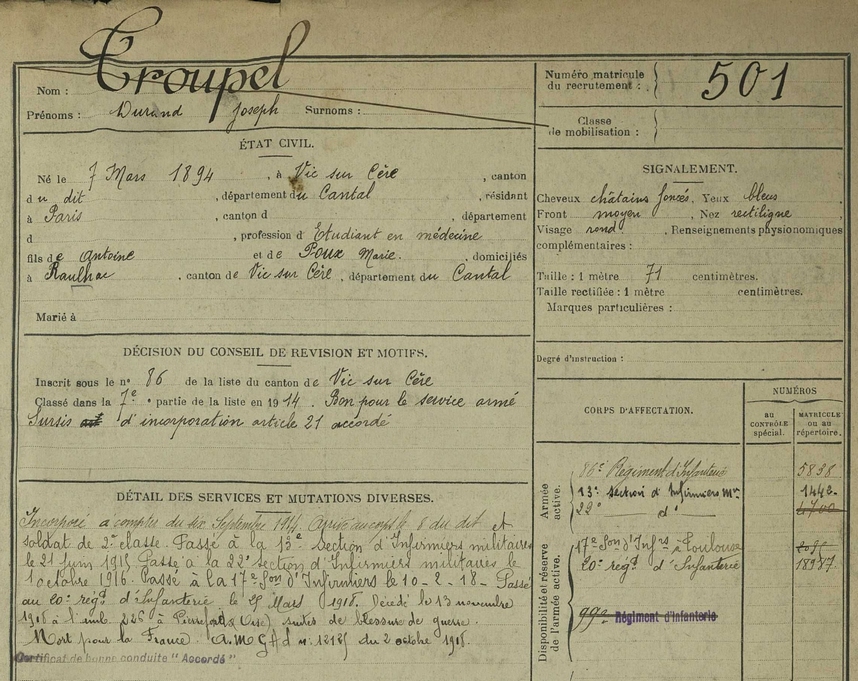 Troupel
Nom :
Prénoms : Durand Joseph Surnoms :
Numéro matricule du recrutement : 501
Classe de mobilisation :
ÉTAT CIVIL.
Né le 7 Mars 1894, à Vic sur Cère, canton
du dit, département du Cantal, résidant
à Paris, canton d , département
d , profession d'Etudiant en médecine
fils de Antoine et de Poux Marie. domiciliés
à Raulhac, canton de Vic sur Cère, département du Cantal
Marié à
SIGNALEMENT.
Cheveux châtains foncés, Yeux bleus,
Front moyen, Nez rectiligne
Visage rond, Renseignements physionomiques
complémentaires :
Taille : 1 mètre 71 centimètres.
Taille rectifiée : 1 mètre centimètres.
Marques particulières :
Degré d'instruction :
DÉCISION DU CONSEIL DE REVISION ET MOTIFS.
Inscrit sous le n° 86 de la liste du canton de Vic sur Cère
Classé dans la 7e partie de la liste en 1914. Bon pour le service armé
Sursis d'incorporation article 21 accordé
DÉTAIL DES SERVICES ET MUTATIONS DIVERSES.
Incorporé a compter du six Septembre 1914. Arrivé au corps le 8 du dit et
soldat de 2e classe. Passé à la 13e Section d'Infirmiers militaires
le 21 juin 1915 Passé à la 22e section d'Infirmiers militaires le
1 octobre 1916. Passé à la 17e Son d'Infirmiers le 10-2-18- Passé
au 20e régt d'Infanterie le 25 Mars 1918. Décédé le 13 novembre
1918 à l'amb. 226 à (Oise) suites de blessure de guerre.
Mort pour la France. du 2 octobre 1918.
Certificat de bonne conduite "Accordé"
CORPS D'AFFECTATION.
NUMÉROS
AU CONTRÔLE spécial.
MATRICULE ou au répertoire.
Armée active.
86e Régiment d'Infanterie 5898
13e section d'Infirmiers Mres 1442
22e d° 4700
Disponibilité et réserve de l'armée active.
17e Son d'Infrs à Toulouse
20e régt d'Infanterie 18987
99e Régiment d'Infanterie